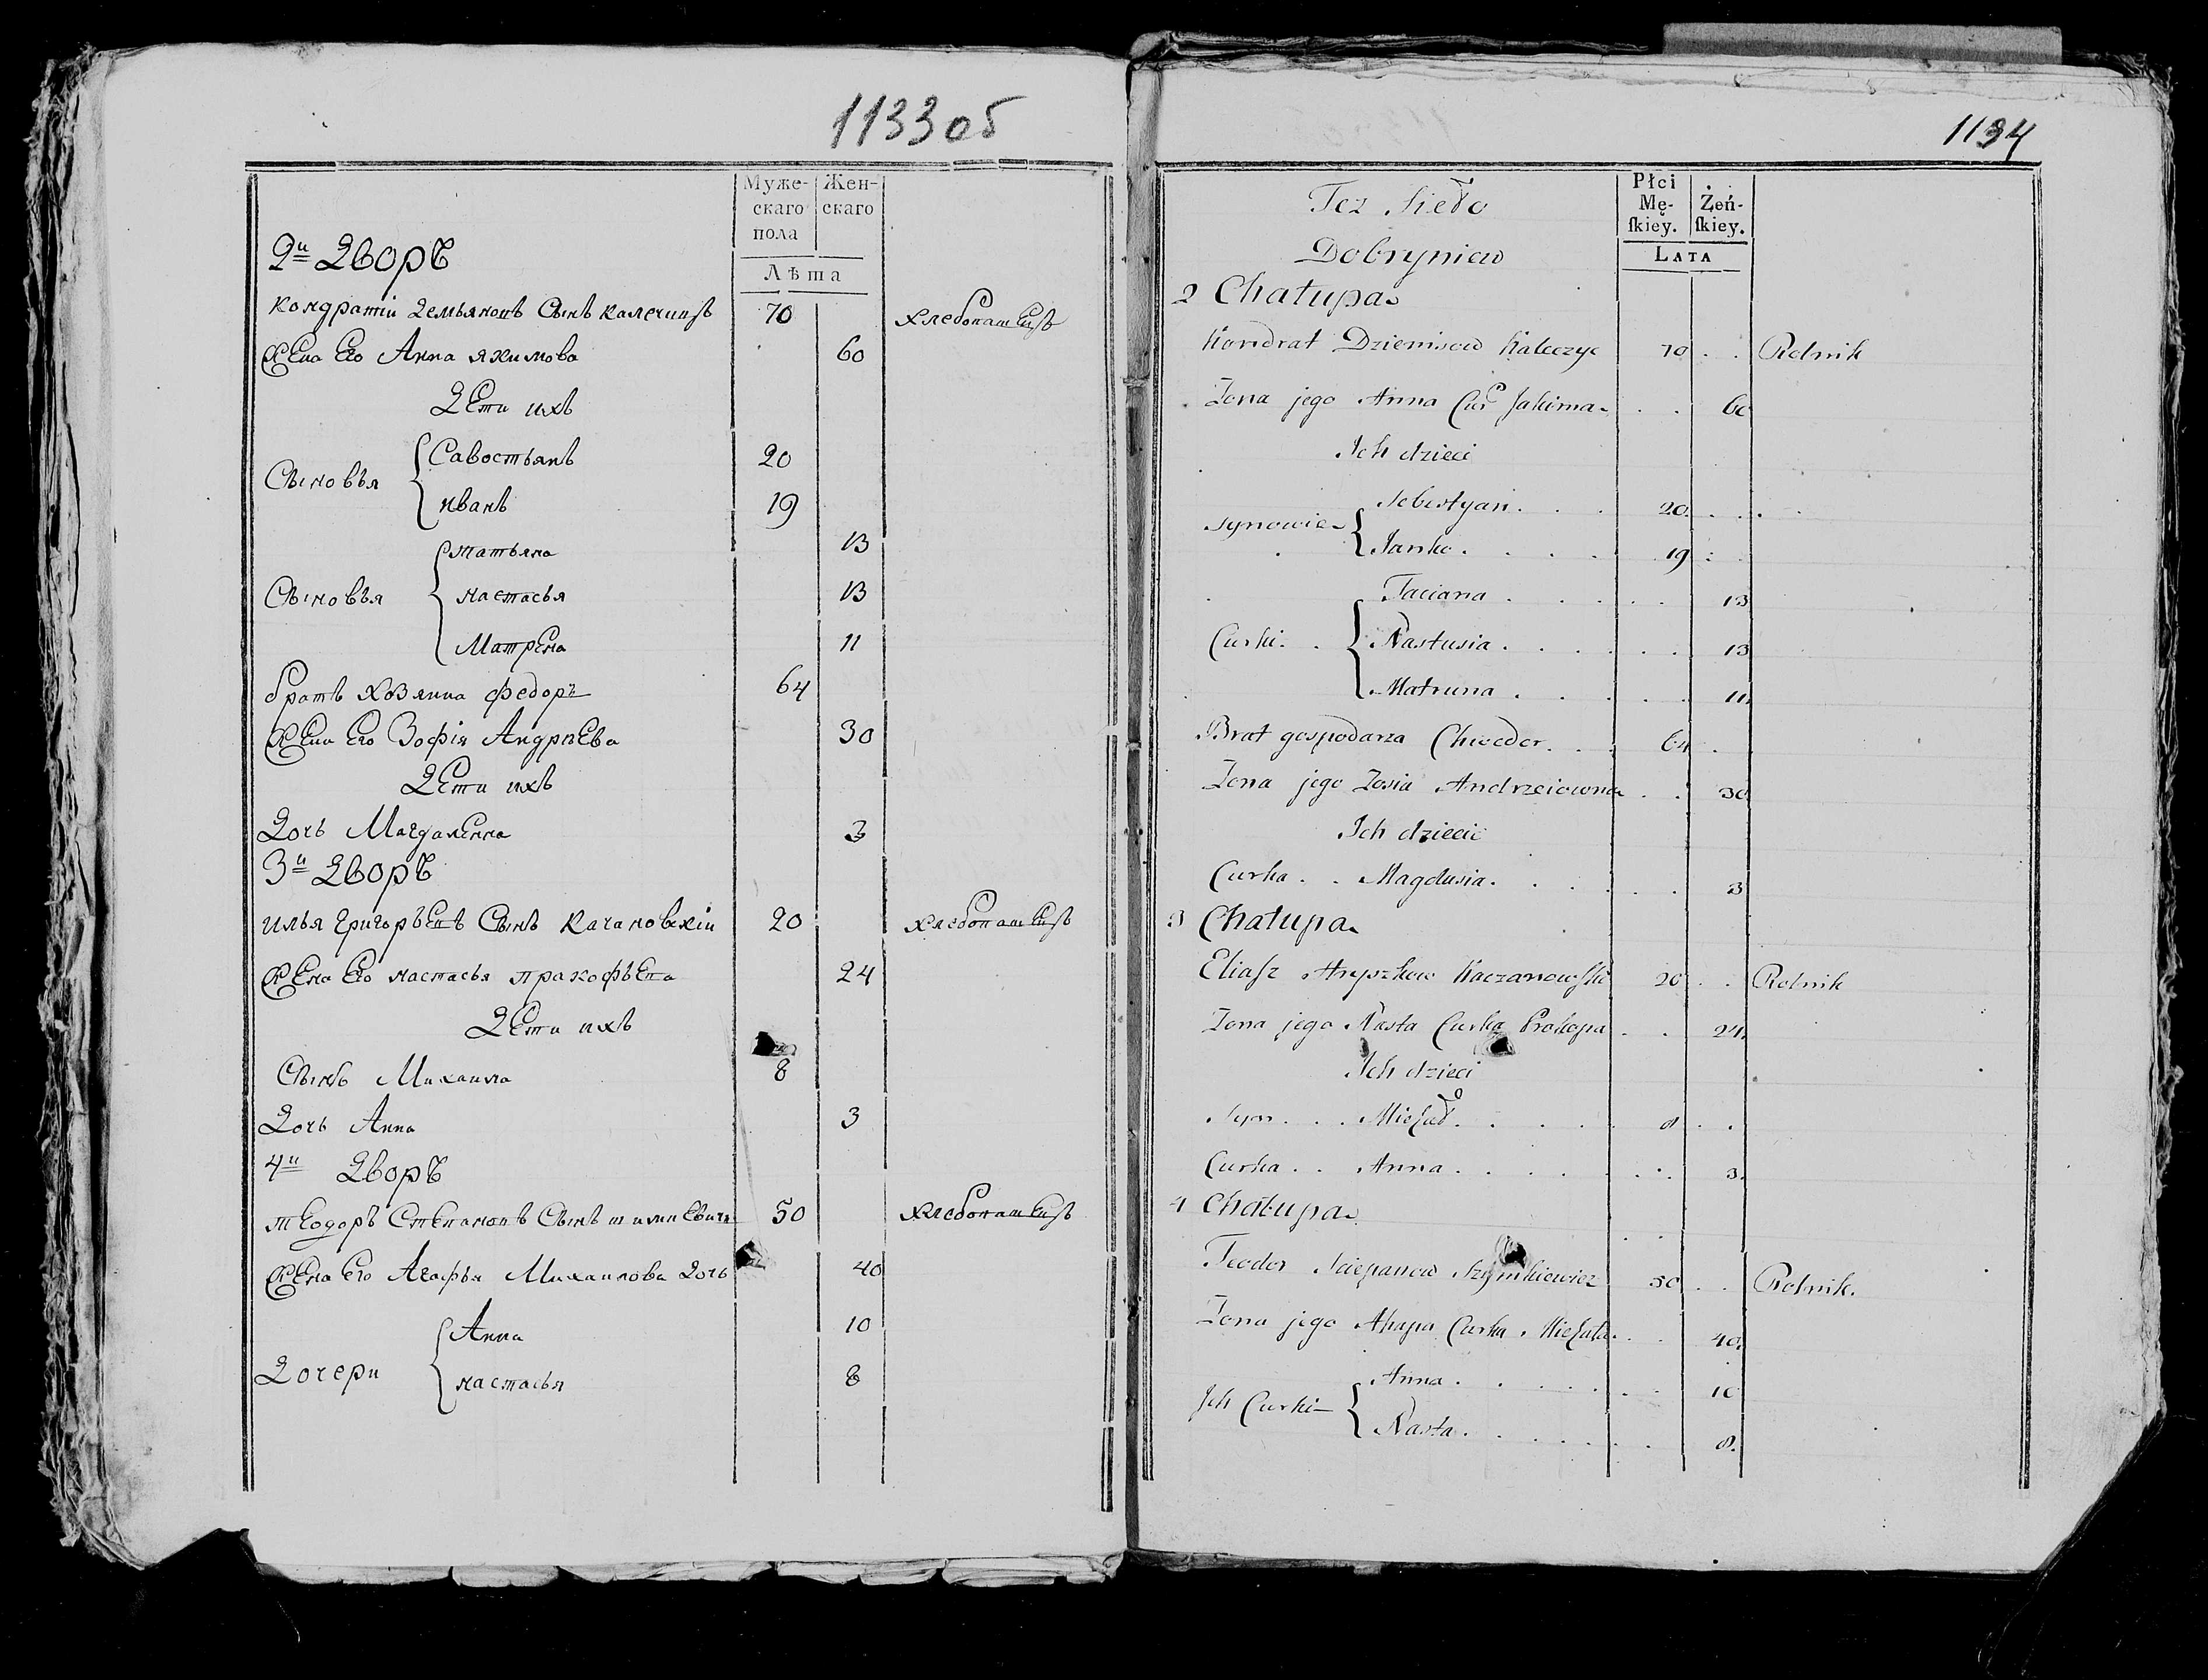 1133 об
Муже-
скаго
пола
Жен-
скаго
Лѣта
2й Дворъ
Кондратій Демьяновъ Сынъ Калечицъ 70 хлебопашецъ
Жена Его Анна Якимова 60
Дети ихъ
Сыновья
Савостьянъ 20
Иванъ 19
Сыновья
Татьяна 13
Настасья 13
Матрена 11
братъ хозяина Федоръ 64
Жена Его Зофія Андрѣева 30
Дети ихъ
Дочь Магдаленна 3
3й Дворъ
Илья Григорьевъ Сынъ Качановскіи 20 хлебопашецъ
Жена Его Настасья Пракофьева 24
Дети ихъ
Сынъ Михаила 8
Дочь Анна 3
4й Дворъ
Теодоръ Степановъ Сынъ 50 хлебопашецъ
Жена Его Агафья Михаилова Дочь 40
Дочери
Анна 10
Настасья 8
1134
Też Sioło
Dobryniew
Płci
Mę-
ſkiey.
Żeń-
ſkiey.
LATA
2 Chałupa
Kondrat Dziemisow 70 Rolnik
Zona jego Anna Cur Jakima 60
Ich dzieci
Synowie
Sebestyan 20
Janko 19
Curki
Taciana 13
Nastusia 13
Matruna 11
Brat gospodarza Chwedor 64
Zona jego Zosia Andrzeiowna 30
Ich dziecie
Curka Magdusia 3
3 Chałupa
Eliaſz Hryszkow Kaczanowſki 20 Rolnik
Zona jego Nasta Curka Prokopa 24
Ich dzieci
Syn Michał 8
Curka Anna 3
4 Chałupa
Teodor Sciepanow Szymkiewicz 50 Rolnik.
Zona jego Ahapa Curka Michała 40
Ich Curki
Anna 10
Nasta 8